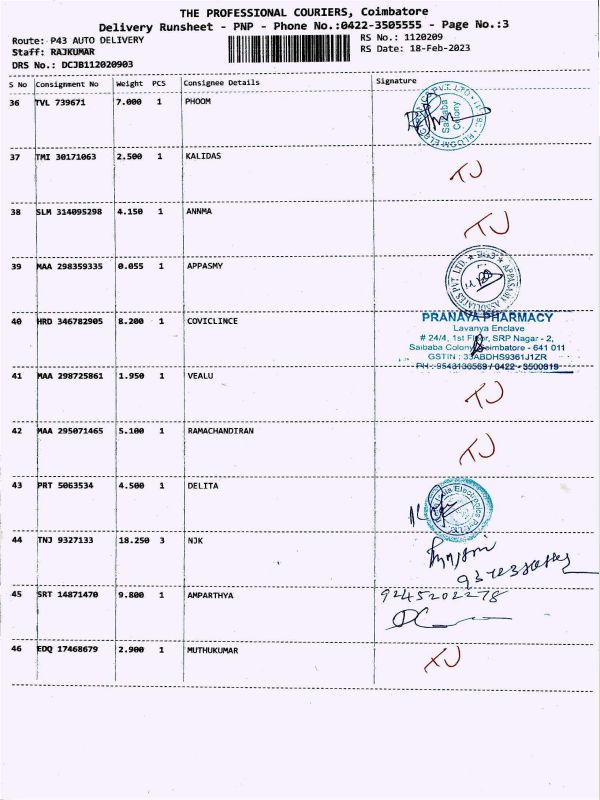 THE PROFESSIONAL COURIERS, Coimbatore
Delivery Runsheet - PNP - Phone No.:0422-3505555 - Page No.:3
Route: P43 AUTO DELIVERY RS No.: 1120209
Staff: RAJKUMAR RS Date: 18-Feb-2023
DRS No.: DCJB112020903
S No Consignment No Weight PCS Consignee Details Signature
36 TVL 739671 7.000 1 PHOOM
Saibaba
Colony
37 TMI 30171063 2.500 1 KALIDAS TJ
38 SLM 314095298 4.150 1 ANNMA TJ
39 MAA 298359335 0.055 1 APPASMY
APPASAMY ASSOCIATES PVT. LTD.
40 HRD 346782905 8.200 1 COVICLINCE
PRANAYA PHARMACY
Lavanya Enclave
# 24/4, 1st Floor, SRP Nagar - 2,
Saibaba Colony, Coimbatore - 641 011
GSTIN : 33ABDHS9361J1ZR
PH : 9543136569 / 0422 - 3500819
41 MAA 298725861 1.950 1 VEALU TJ
42 MAA 295071465 5.100 1 RAMACHANDIRAN TJ
43 PRT 5063534 4.500 1 DELITA
44 TNJ 9327133 18.250 3 NJK
45 SRT 14871470 9.800 1 AMPARTHYA 9245202278
46 EDQ 17468679 2.900 1 MUTHUKUMAR TJ